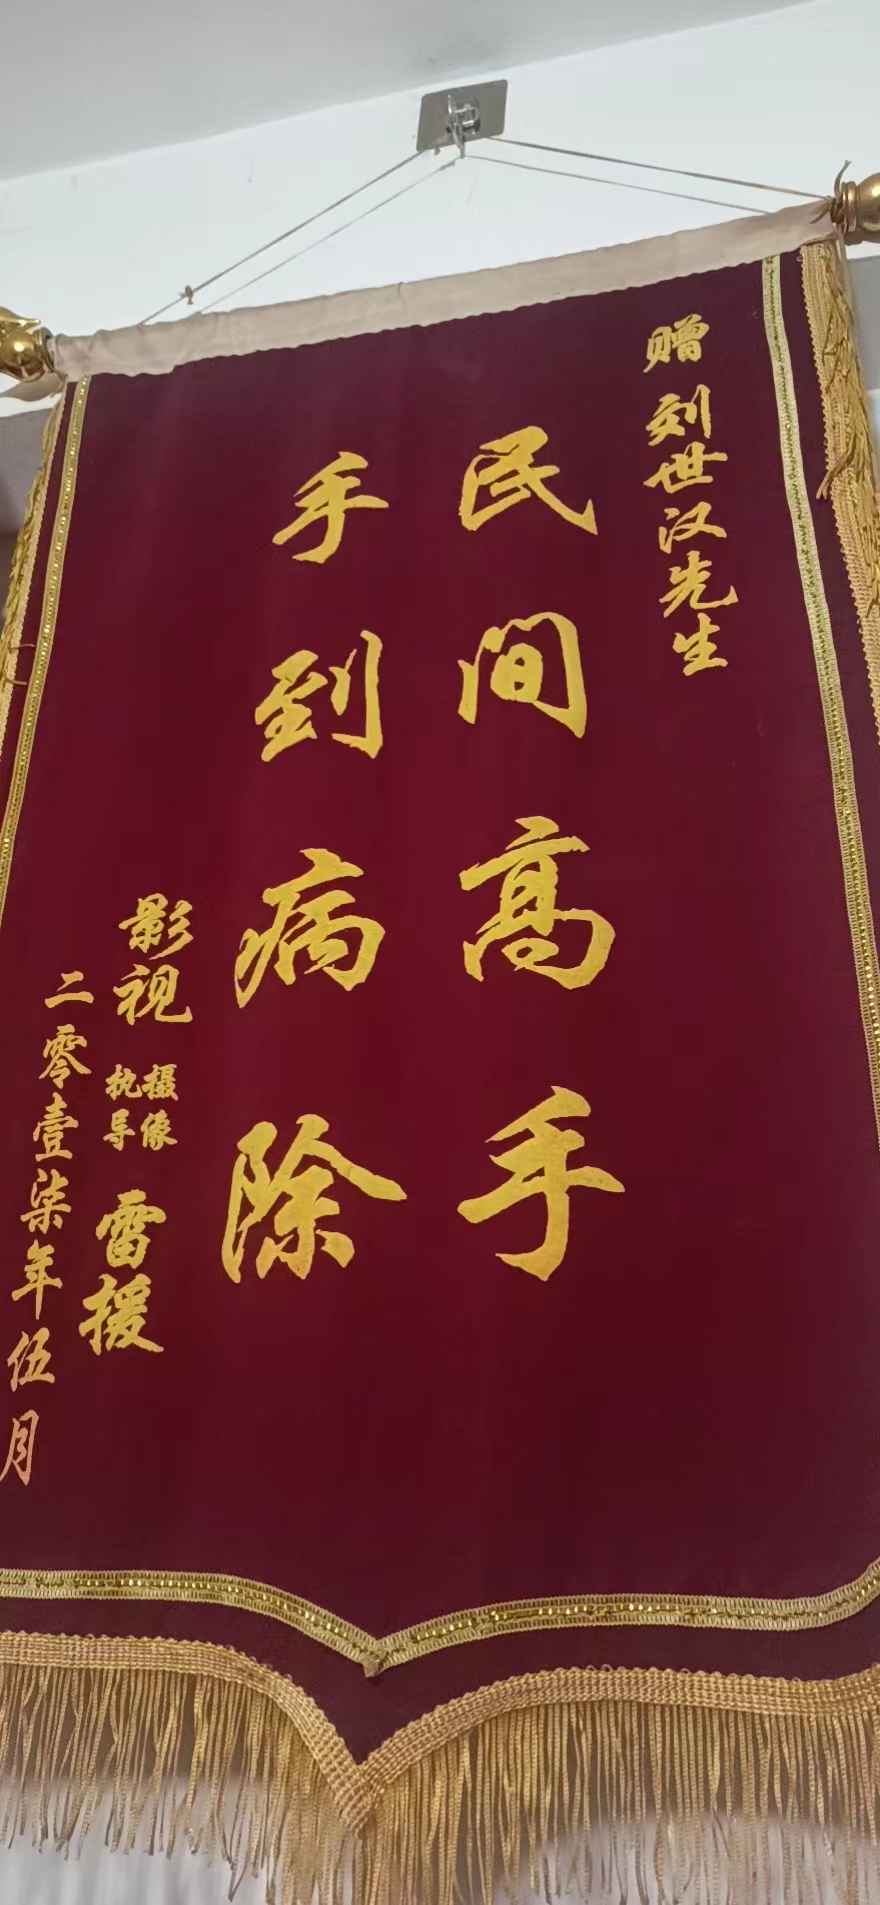 赠刘世汉先生
民间高手
手到病除
影视
摄像
执导
雷援
二零壹柒年伍月